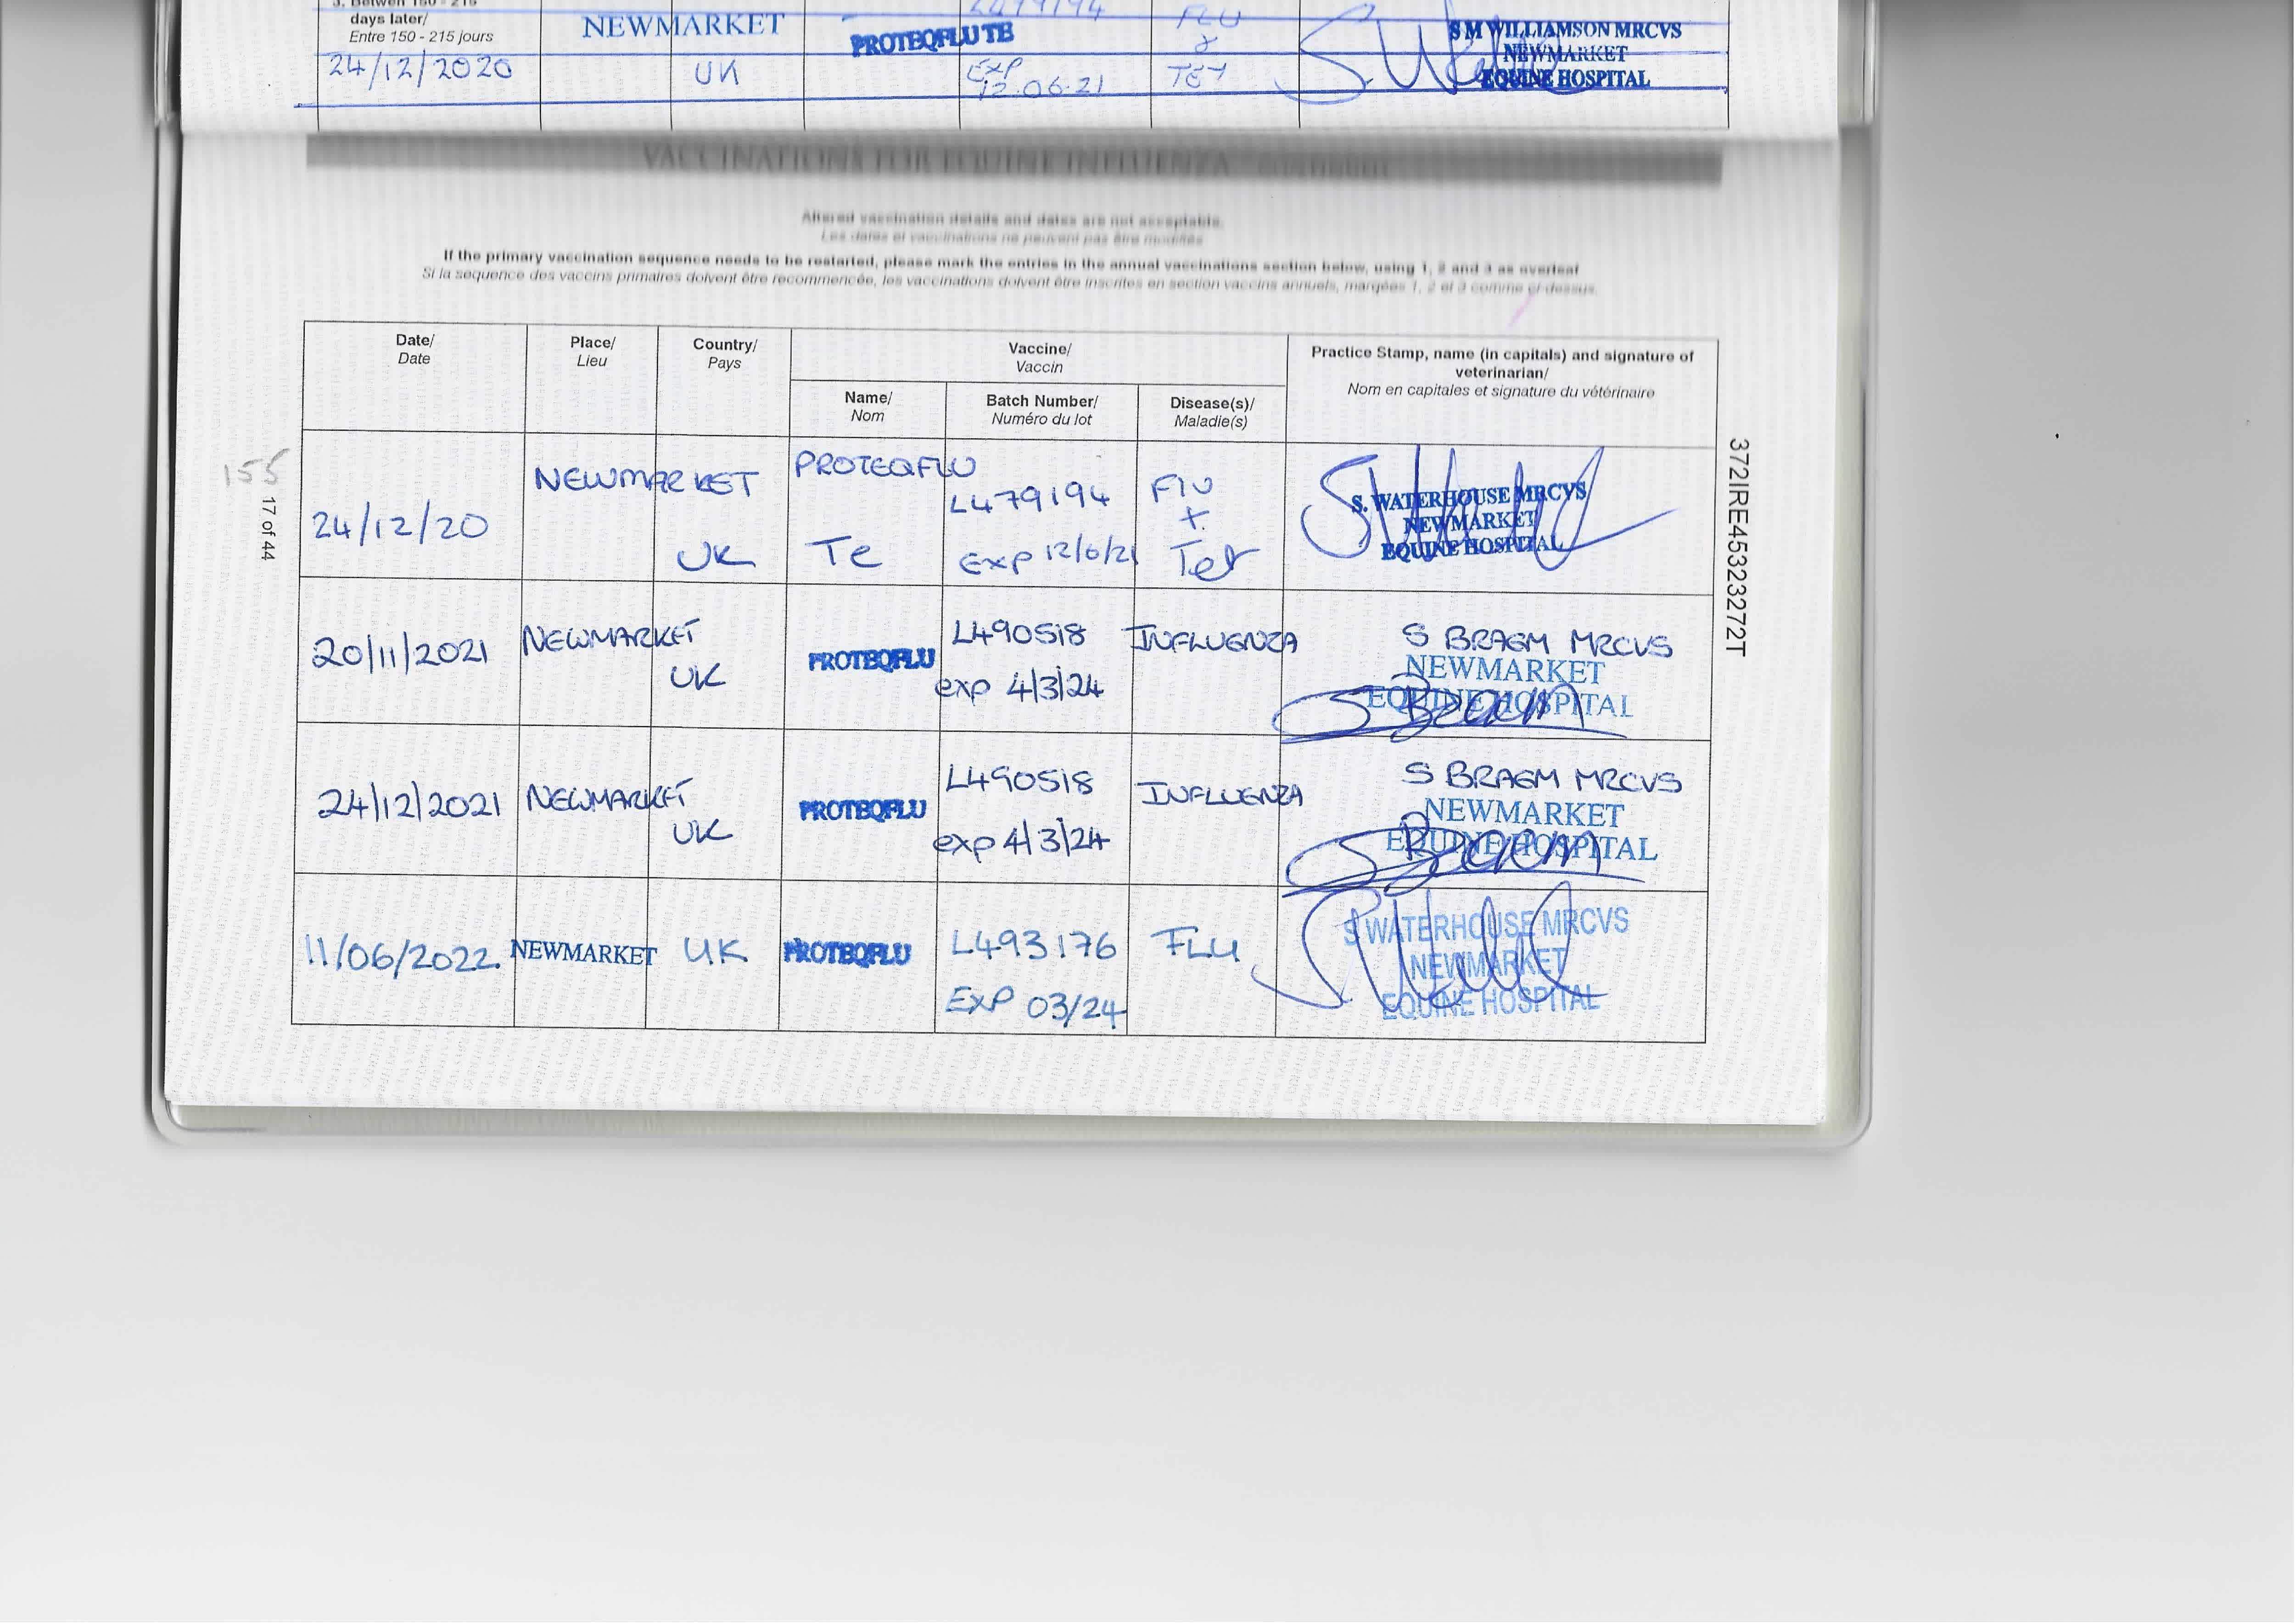 3. Between 150 - 215
days later/
Entre 150 - 215 jours
24/12/2020
NEWMARKET
UK
PROTEQFLU TE
L479194
EXP
12.06.21
FLU
&
TET
S M WILLIAMSON MRCVS
NEWMARKET
EQUINE HOSPITAL
VACCINATIONS FOR EQUINE INFLUENZA continued
Altered vaccination details and dates are not acceptable.
Les dates et vaccinations ne peuvent pas être modifiés
If the primary vaccination sequence needs to be restarted, please mark the entries in the annual vaccinations section below, using 1, 2 and 3 as overleaf
Si la sequence des vaccins primaires doivent être recommencée, les vaccinations doivent être inscrites en section vaccins annuels, marqées 1, 2 et 3 comme ci-dessus.
Date/
Date
Place/
Lieu
Country/
Pays
Vaccine/
Vaccin
Practice Stamp, name (in capitals) and signature of
veterinarian/
Nom en capitales et signature du vétérinaire
Name/
Nom
Batch Number/
Numéro du lot
Disease(s)/
Maladie(s)
24/12/20
NEWMARKET
UK
PROTEQFLU
Te
L479194
Exp 12/6/21
Flu
+
Tet
S. WATERHOUSE MRCVS
NEWMARKET
EQUINE HOSPITAL
20/11/2021
NEWMARKET
UK
PROTEQFLU
L490518
exp 4/3/24
INFLUENZA
S BRAEM MRCVS
NEWMARKET
EQUINE HOSPITAL
S Braem
24/12/2021
NEWMARKET
UK
PROTEQFLU
L490518
exp 4/3/24
INFLUENZA
S BRAEM MRCVS
NEWMARKET
EQUINE HOSPITAL
S Braem
11/06/2022.
NEWMARKET
UK
PROTEQFLU
L493176
EXP 03/24
FLU
S WATERHOUSE MRCVS
NEWMARKET
EQUINE HOSPITAL
155
17 of 44
372IRE45323272T